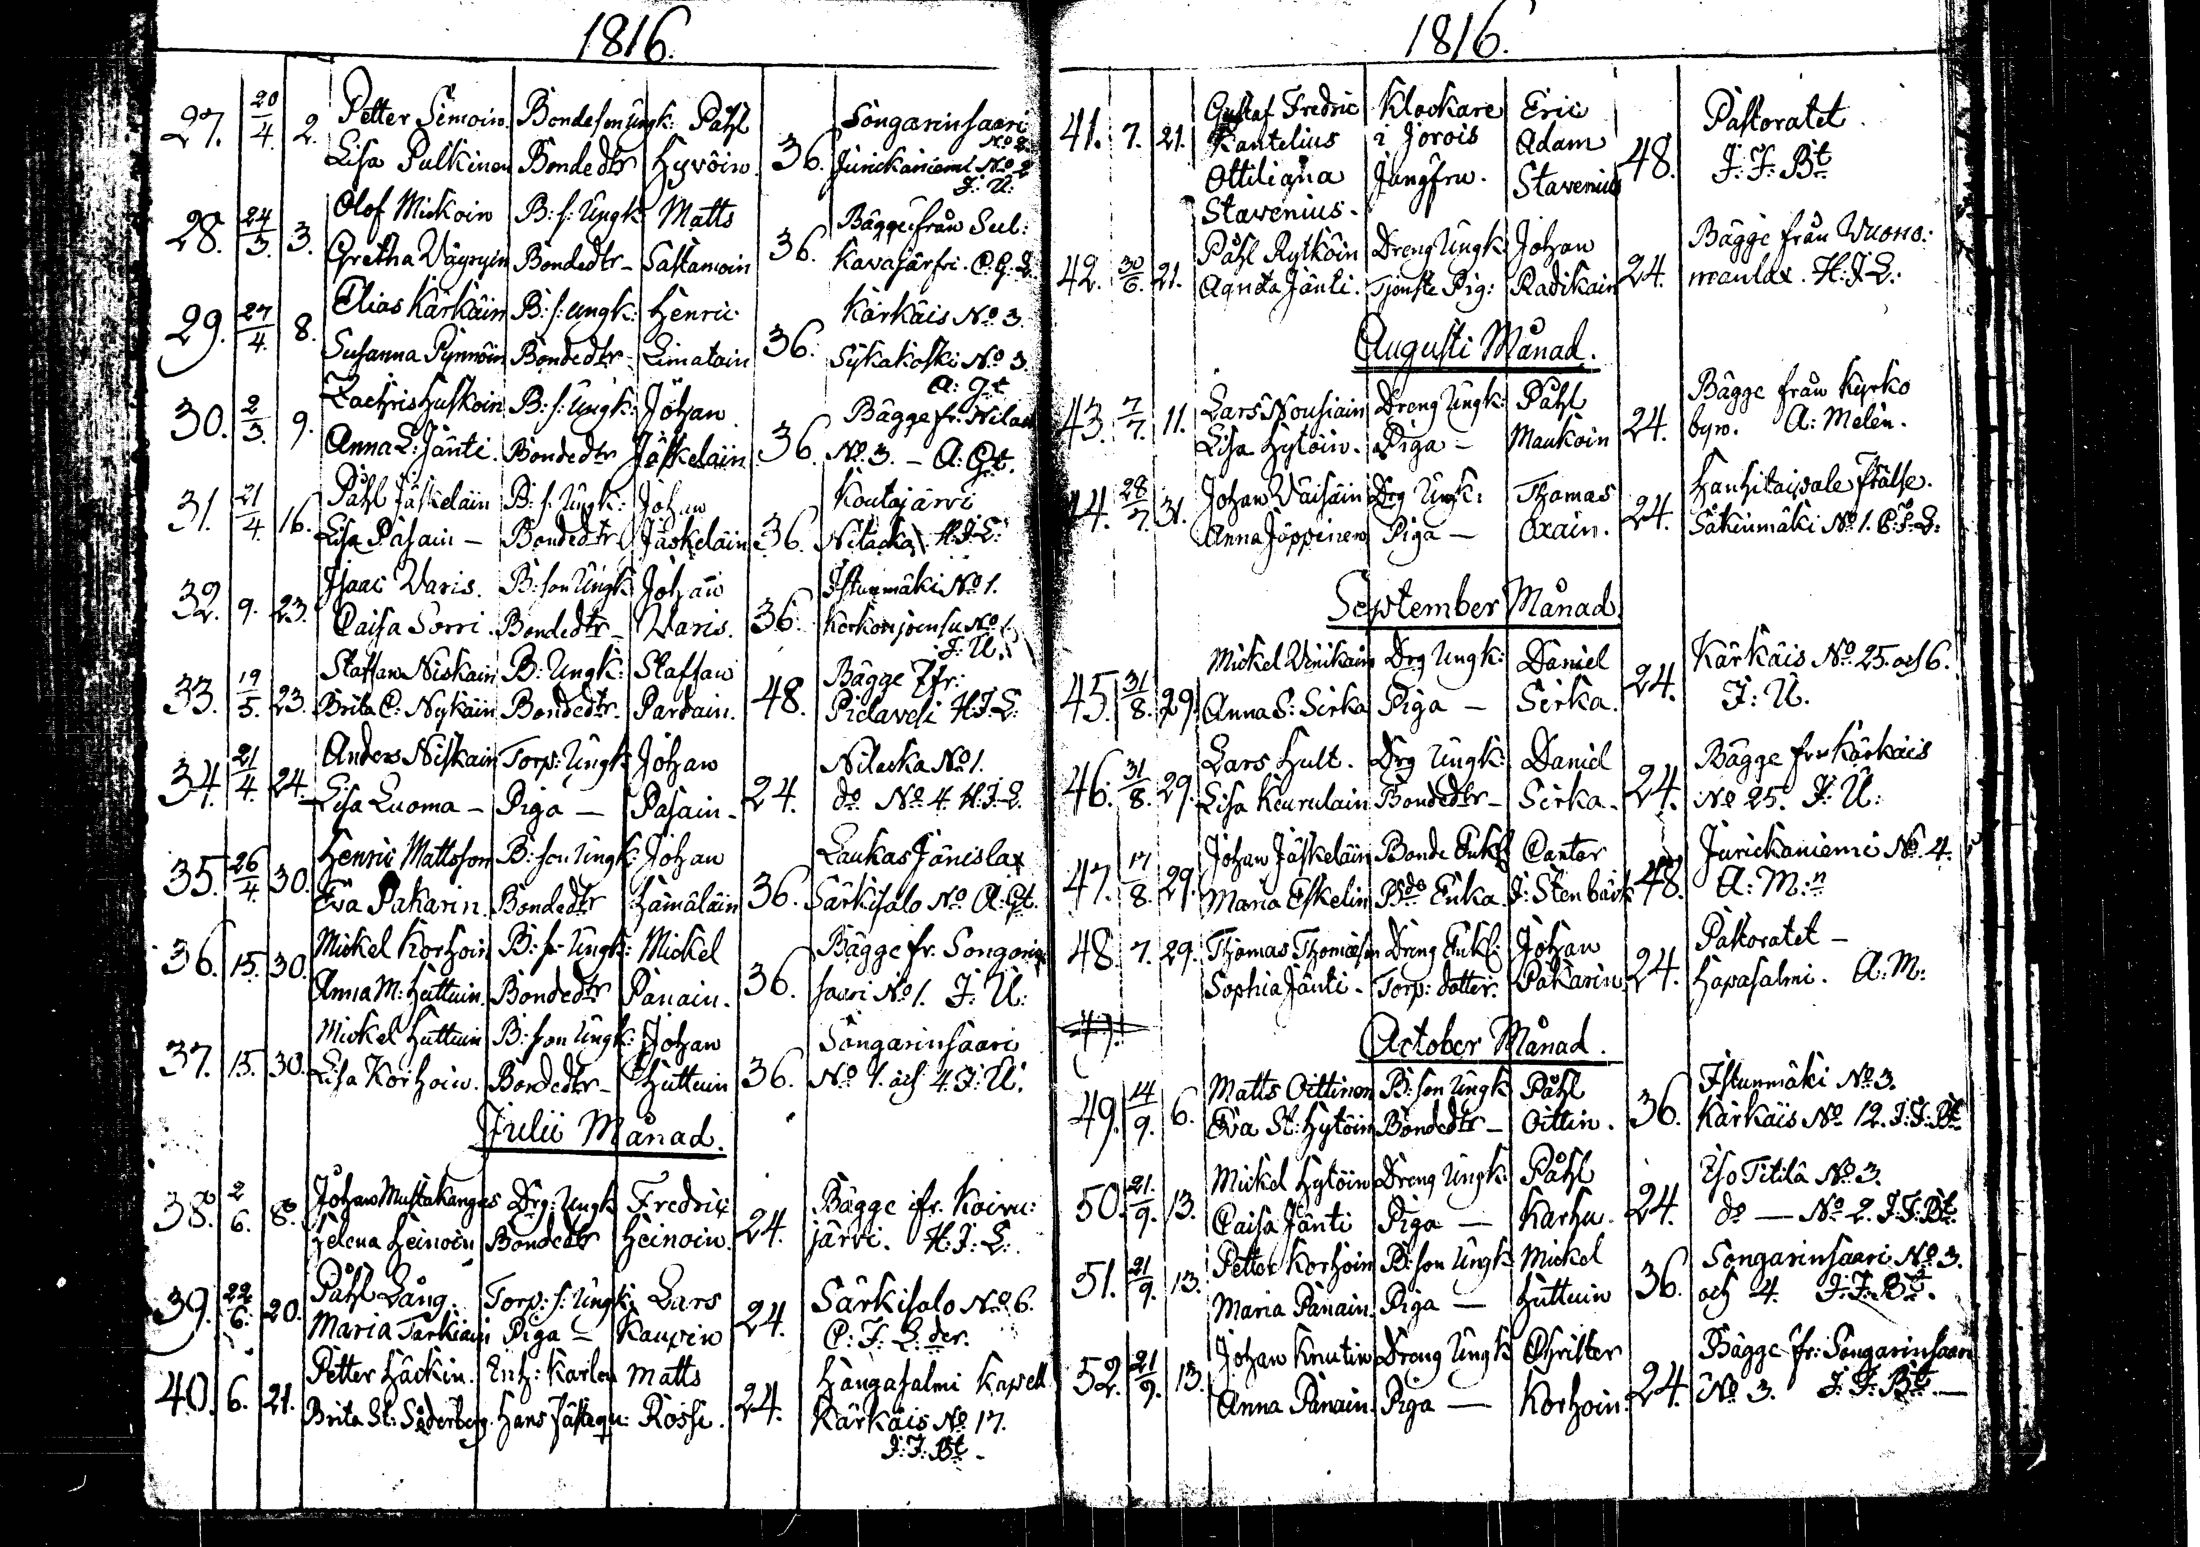 1816.
27. 20/4. 2. Petter Simoin. Bondeson Ungk: Påhl 36. Songarinsaari
No 2.
Lisa Pulkinen Bondedtr Hyvöin. Jurickaniemi No 2
J: U:
28. 24/3. 3. Olof Mickoin B: s: Ungk: Matts 36. Bägge från Sul:
Gretha Väyryin Bondedtr- Sastamoin kavajärfvi. C. G. L.
29. 27/4. 8. Elias Kärkäin B: s: Ungk: Henric 36. Kärkäis No 3.
Susanna Pynnöin Bondedtr- Limatain Sykäkoski No 3
A: Gt
30. 2/3. 9. Zachris Huskoin B: s: Ungk: Johan 36. Bägge fr. Nilack
Anna L: Jänti. Bondedtr Jäskeläin No. 3. - A: Gt.
31. 21/4. 16. Påhl Jäskeläin B: s: Ungk: Johan 36. Koutajärvi
Lisa Pasain - Bondedtr Jäskeläin Nilacka H.J.L:
32. 9. 23. Isaac Varis. B: son Ungk Johan 36. Istunmäki No 1.
Caisa Sorri. Bondedtr- Varis. Kerkonjoensu No 1.
J: U.
33. 19/5. 23. Staffan Niskain B: Ungk: Staffan 48. Bägge fr:
Brita C: Nykäin Bondedtr. Pardain. Pielavesi H.J.L:
34. 21/4. 24. Anders Niskain Torp: Ungk Johan 24. Nilacka No 1.
Lisa Luoma - Piga - Pasain. do No 4. H.J.L.
35. 26/4. 30. Henric Mattsson B: son Ungk: Johan 36. Laukas Jäneslax
Eva Pakarin. Bondedtr Hämäläin Särkisalo No. A: Gt.
36. 15. 30. Mickel Korhoin B: s: Ungk: Mickel 36. Bägge fr. Songarin
Anna M: Huttuin. Bondedtr Panain. saari No 1. J: U:
37. 15. 30. Mickel Huttuin B: son Ungk: Johan 36. Songarinsaari
Lisa Korhoin. Bondedtr- Huttuin No 1. och 4. J: U:
Julii Månad.
38. 2/6. 8. Johan Mustakangas Drg: Ungk Fredric 24. Bägge fr. Koivu:
Helena Heinoin Bondedtr Heinoin. järvi. H: J: L:
39. 22/6. 20. Påhl Lång. Torp: s: Ungk: Lars 24. Särkisalo No 6.
Maria Tarkiain Piga - Kaupin C: J: L:der.
40. 6. 21. Petter Häckin. Enk: Karlen Matts 24. Hangasalmi Kapell
Brita St: Söderberg. Hans Rossi. Kärkäis No 17.
J: J: Bt-
1816.
41. 7. 21. Gustaf Fredric Klockare Eric 48. Pastoratet.
Kantelius i Jorois Adam J: J: Bt
Ottiliana Jungfru. Stavenius
Stavenius.
42. 30/6. 21. Påhl Rytköin Dreng Ungk: Johan 24. Bägge från Vuono:
Agneta Jänti. Tjenste Pig: Radikain manlax. H: J: L:
Augusti Månad.
43. 7/7. 11. Lars Nousiain Dreng Ungk: Påhl 24. Bägge från Kyrko
Lisa Hytöin. Piga - Maukoin byn. A: Melén.
44. 28/7. 31. Johan Väisäin Drg Ungk: Thomas 24. Hanhitaipale frälse.
Anna Jäppinen Piga - Oxain. Säkinmäki No 1. C: J: L:
September Månad
45. 31/8. 29. Mickel Vänikain Drg Ungk: Daniel 24. Kärkäis No 25. och 6.
Anna S: Sirka Piga - Sirka. J: U.
46. 31/8. 29. Lars Hult. Drg Ungk: Daniel 24. Bägge från Kärkäis
Lisa Keurulain Bondedtr- Sirka. No 25. J: U:
47. 17/8. 29. Johan Jäskeläin Bonde Enkl Cantor 48. Jurickaniemi No 4.
Maria Eskelin Bde Enka J: Stenbäck A: M:n
48. 7. 29. Thomas Thomasson Dreng Enkl: Johan 24. Pastoratet -
Sophia Jänti. Torp: dotter. Pakarin Hapasalmi. A: M:
49.
October Månad.
49. 14/9. 6. Matts Oittinen B: son Ungk Påhl 36. Istunmäki No 3.
Eva St: Hytöin Bondedtr- Oittin. Kärkäis No 12. J: J: Bt
50. 21/9. 13. Mickel Hytöin Dreng Ungk: Påhl 24. Iso Titilä No 3.
Caisa Jänti Piga - Karhu. do - No 2. J. J. Bt
51. 21/9. 13. Petter Korhoin B: son Ungk Mickel 36. Songarinsaari No 3.
Maria Panain. Piga - Huttuin och 4. J: J: Bt.
52. 21/9. 13. Johan Knutin Dreng Ungk Christer 24. Bägge fr: Songarinsaari
Anna Panain. Piga - Korhoin. No 3. J: J: Bt. -